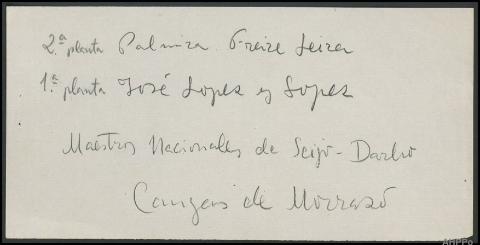 2.ª planta Palmira Freire Leira
1.ª planta José Lopez y Lopez
Maestros Nacionales de Seijo-Darbo
Cangas de Morrazó
AHPPo